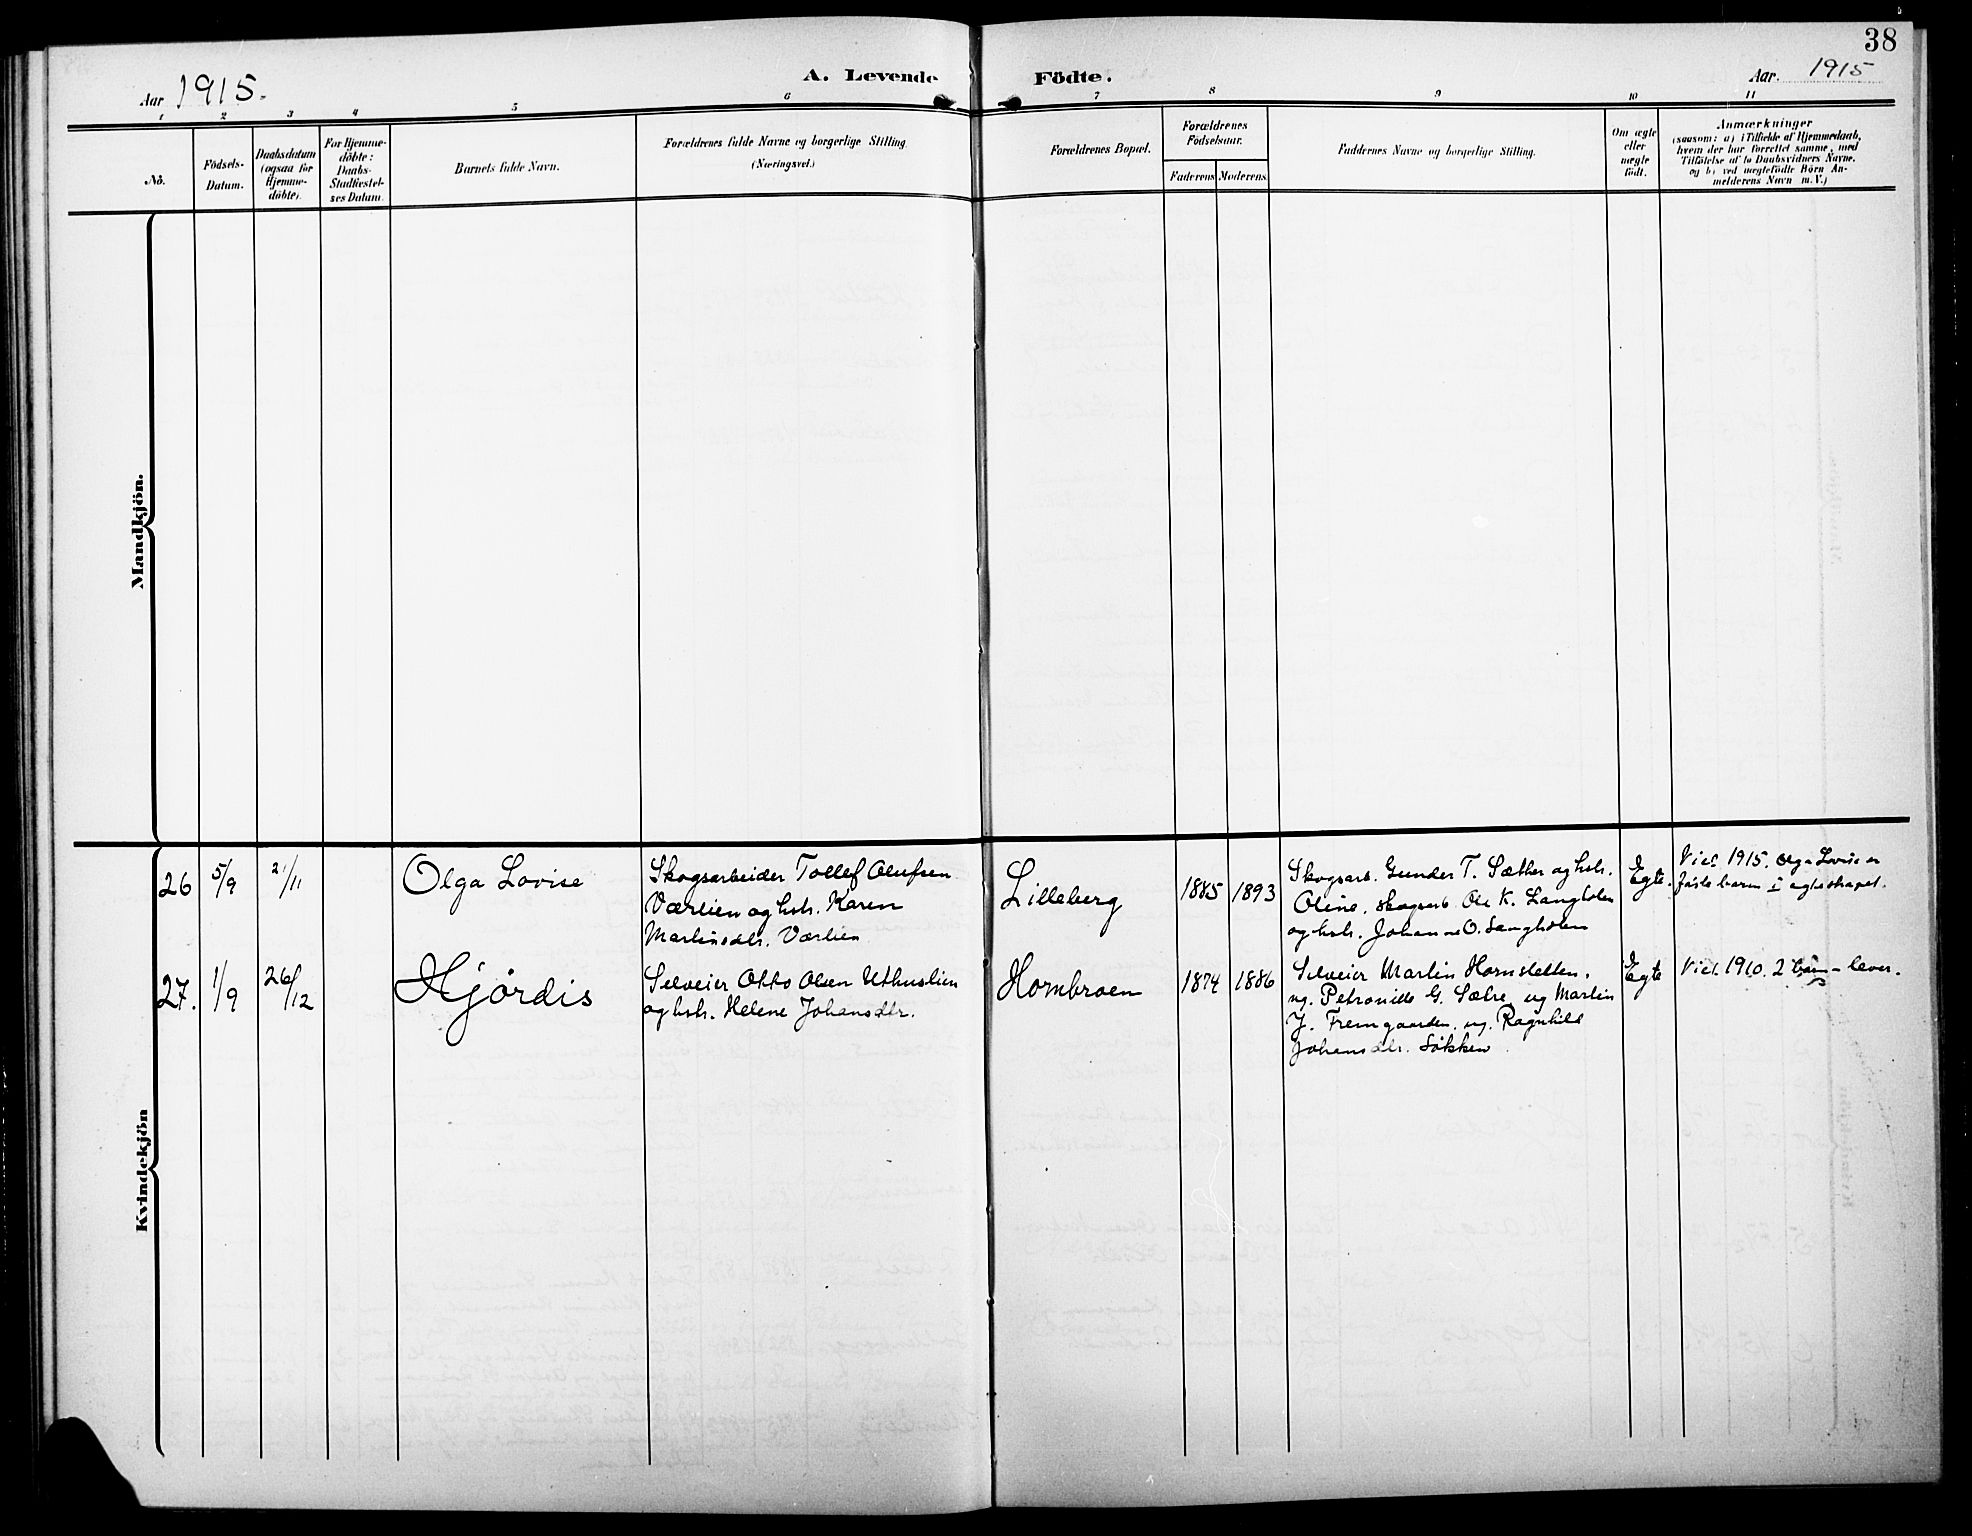 38
Aar 1915.
A. Levende Födte.
Aar. 1915
1 2 3 4 5 6 7 8 9 10 11
No.
Födsels-
Datum.
Daabsdatum
(ogsaa for
Hjemme-
döbte).
For Hjemme-
döbte:
Daabs-
Stadfæstel-
ses Datum.
Barnets fulde Navn.
Forældrenes fulde Navne og borgerlige Stilling.
(Næringsvei.)
Forældrenes Bopæl.
Forældrenes
Födselsaar.
Faderens Moderens
Faddernes Navne og borgerlige Stilling.
Om ægte
eller
uægte
födt.
Anmærkninger
(saasom: a) i Tilfælde af Hjemmedaab,
hvem der har forrettet samme, med
Tilföielse af to Daabsvidners Navne.
og b) ved uægtefödte Börn An-
melderens Navn m. V.)
Mandkjön.
Kvindekjön
26
5/9
21/11
Olga Lovise
Skogsarbeider Tollef Olufsen
Værlien og hstr. Karen
Martinsdtr. Værlien
Lilleberg
1885
1893
Skogsarb. Gunder T. Sæther og hstr.
Oline, skogsarb. Ole K. Langholen
og hstr. Johanne O. Langholen
Egte.
Viet 1915. Olga Lovise er
første barn i egteskapet.
27.
1/9
26/12
Hjørdis
Selveier Otto Olsen Uthuslien
og hstr. Helene Johansdtr.
Hornbroen
1874
1886
Selveier Martin Hornsletten,
ug. Petronille G. Sætre, ug Martin
J. Fremgaarden, ug. Ragnhild
Johansdtr. Søkken
Egte
Viet 1910. 2 barn lever.